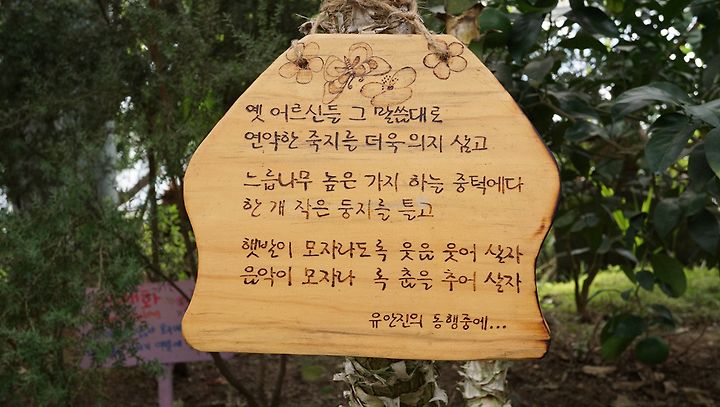 옛 어르신들 그 말씀대로
연약한 죽지를 더욱 의지 삼고
느릅나무 높은 가지 하늘 중턱에다
한 개 작은 둥지를 틀고
햇발이 모자라도록 웃음 웃어 살자
음악이 모자라 록 춤을 추어 살자
유안진의 동행중에...